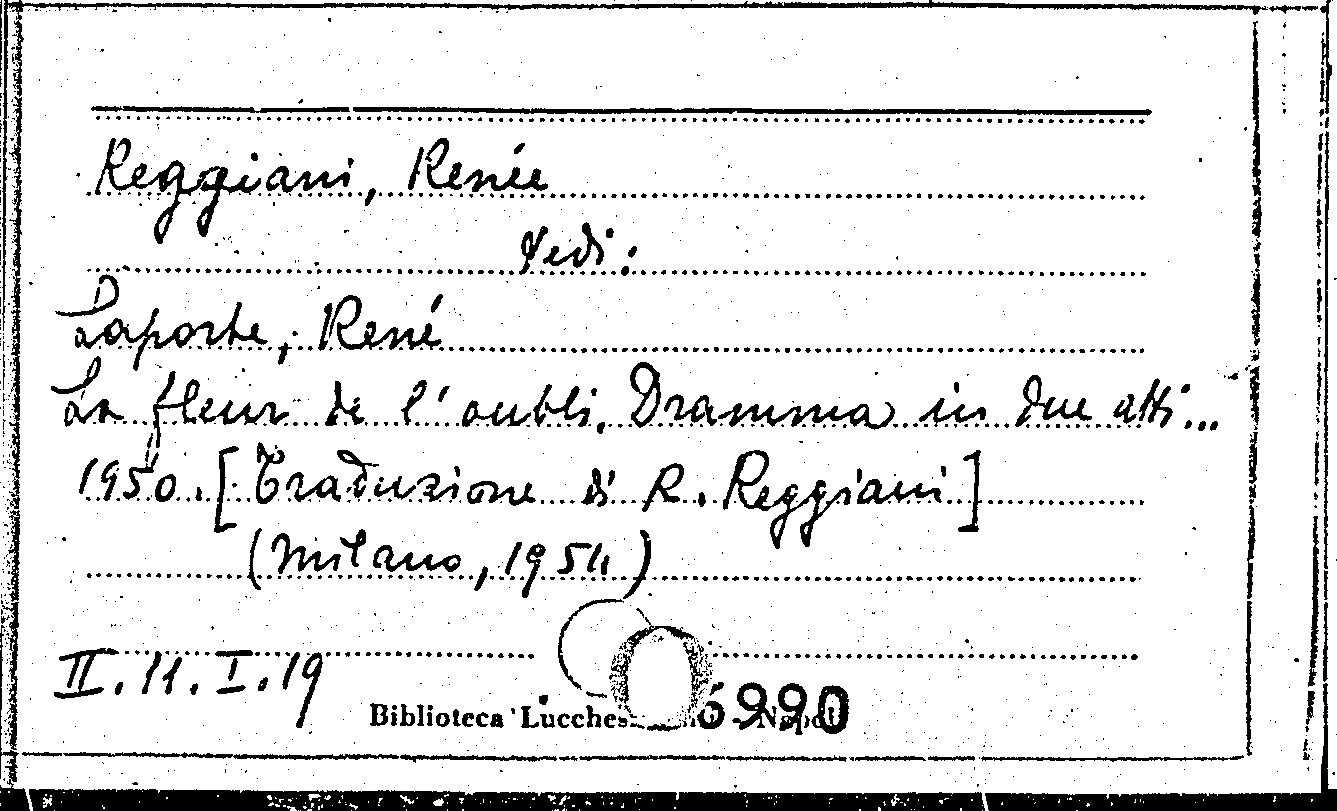 Reggiani, Renée
Vedi:
Laporte, René
La fleur de l'oubli. Dramma in due atti...
1950. [Traduzione di R. Reggiani]
(Milano, 1954)
II. 11. I. 19
Biblioteca Lucchesi - Napoli
6990